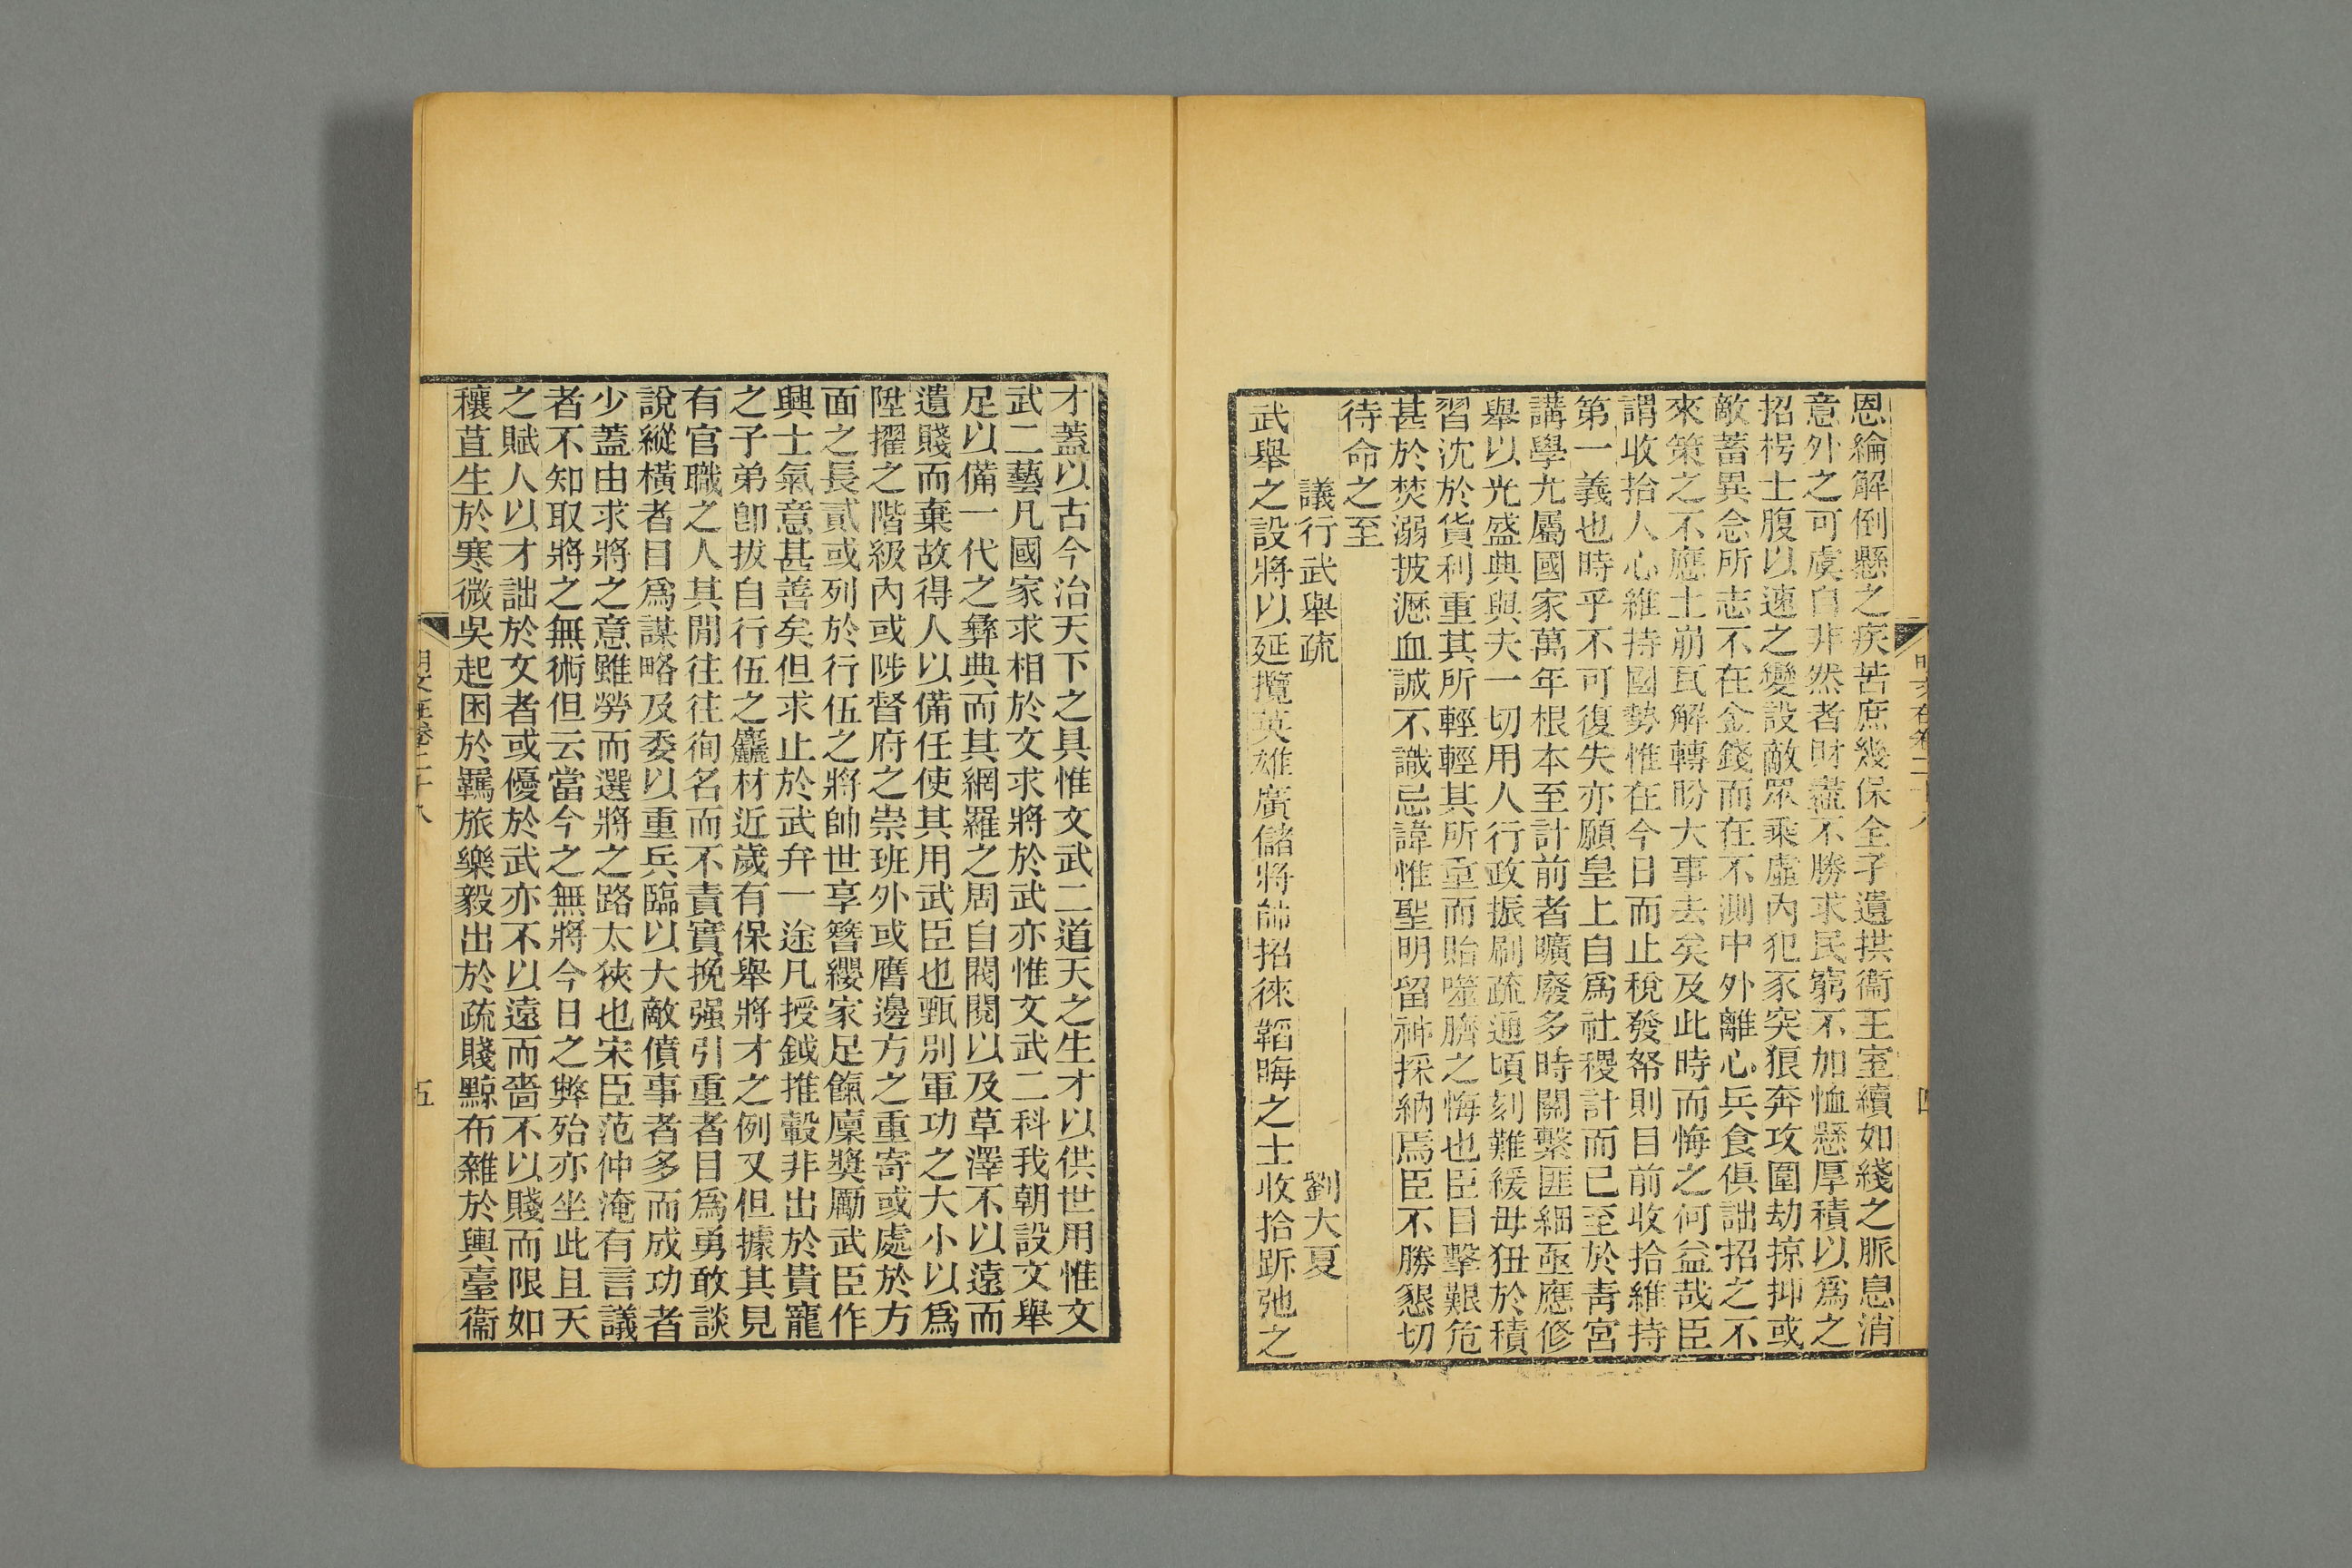 恩綸解倒懸之疾苦庶幾保全孑遺拱衞王室續如綫之脈息消
意外之可虞自非然者財盡不勝求民窮不加恤懸厚積以爲之
招枵士腹以速之變設敵眾乘虛內犯豕突狼奔攻圍劫掠抑或
敵蓄異念所志不在金錢而在不測中外離心兵食俱詘招之不
來策之不應土崩瓦解轉盼大事去矣及此時而悔之何益哉臣
謂收拾人心維持國勢惟在今日而止稅發帑則目前收拾維持
第一義也時乎不可復失亦願皇上自爲社稷計而已至於靑宮
講學尤屬國家萬年根本至計前者曠廢多時關繫匪細亟應修
舉以光盛典與夫一切用人行政振刷疏通頃刻難緩毋狃於積
習沈於貨利重其所輕輕其所重而貽噬臍之悔也臣目擊艱危
甚於焚溺披瀝血誠不識忌諱惟聖明留神採納焉臣不勝懇切
待命之至
議行武舉疏　劉大夏
武舉之設將以延攬英雄廣儲將帥招徠韜晦之士收拾跅弛之
明文在卷二十八
才蓋以古今治天下之具惟文武二道天之生才以供世用惟文
武二藝凡國家求相於文求將於武亦惟文武二科我朝設文舉
足以備一代之彝典而其網羅之周自閥閱以及草澤不以遠而
遺賤而棄故得人以備任使其用武臣也甄別軍功之大小以爲
陞擢之階級內或陟督府之崇班外或膺邊方之重寄或處於方
面之長貳或列於行伍之將帥世享簪纓家足餼廩獎勵武臣作
興士氣意甚善矣但求止於武弁一途凡授鉞推轂非出於貴寵
之子弟卽拔自行伍之麤材近歲有保舉將才之例又但據其見
有官職之人其閒往往徇名而不責實挽强引重者目爲勇敢談
說縱橫者目爲謀略及委以重兵臨以大敵僨事者多而成功者
少蓋由求將之意雖勞而選將之路太狹也宋臣范仲淹有言議
者不知取將之無術但云當今之無將今日之弊殆亦坐此且天
之賦人以才詘於文者或優於武亦不以遠而嗇不以賤而限如
穰苴生於寒微吳起困於羈旅樂毅出於疏賤黥布雜於輿臺衞
明文在卷二十八
五